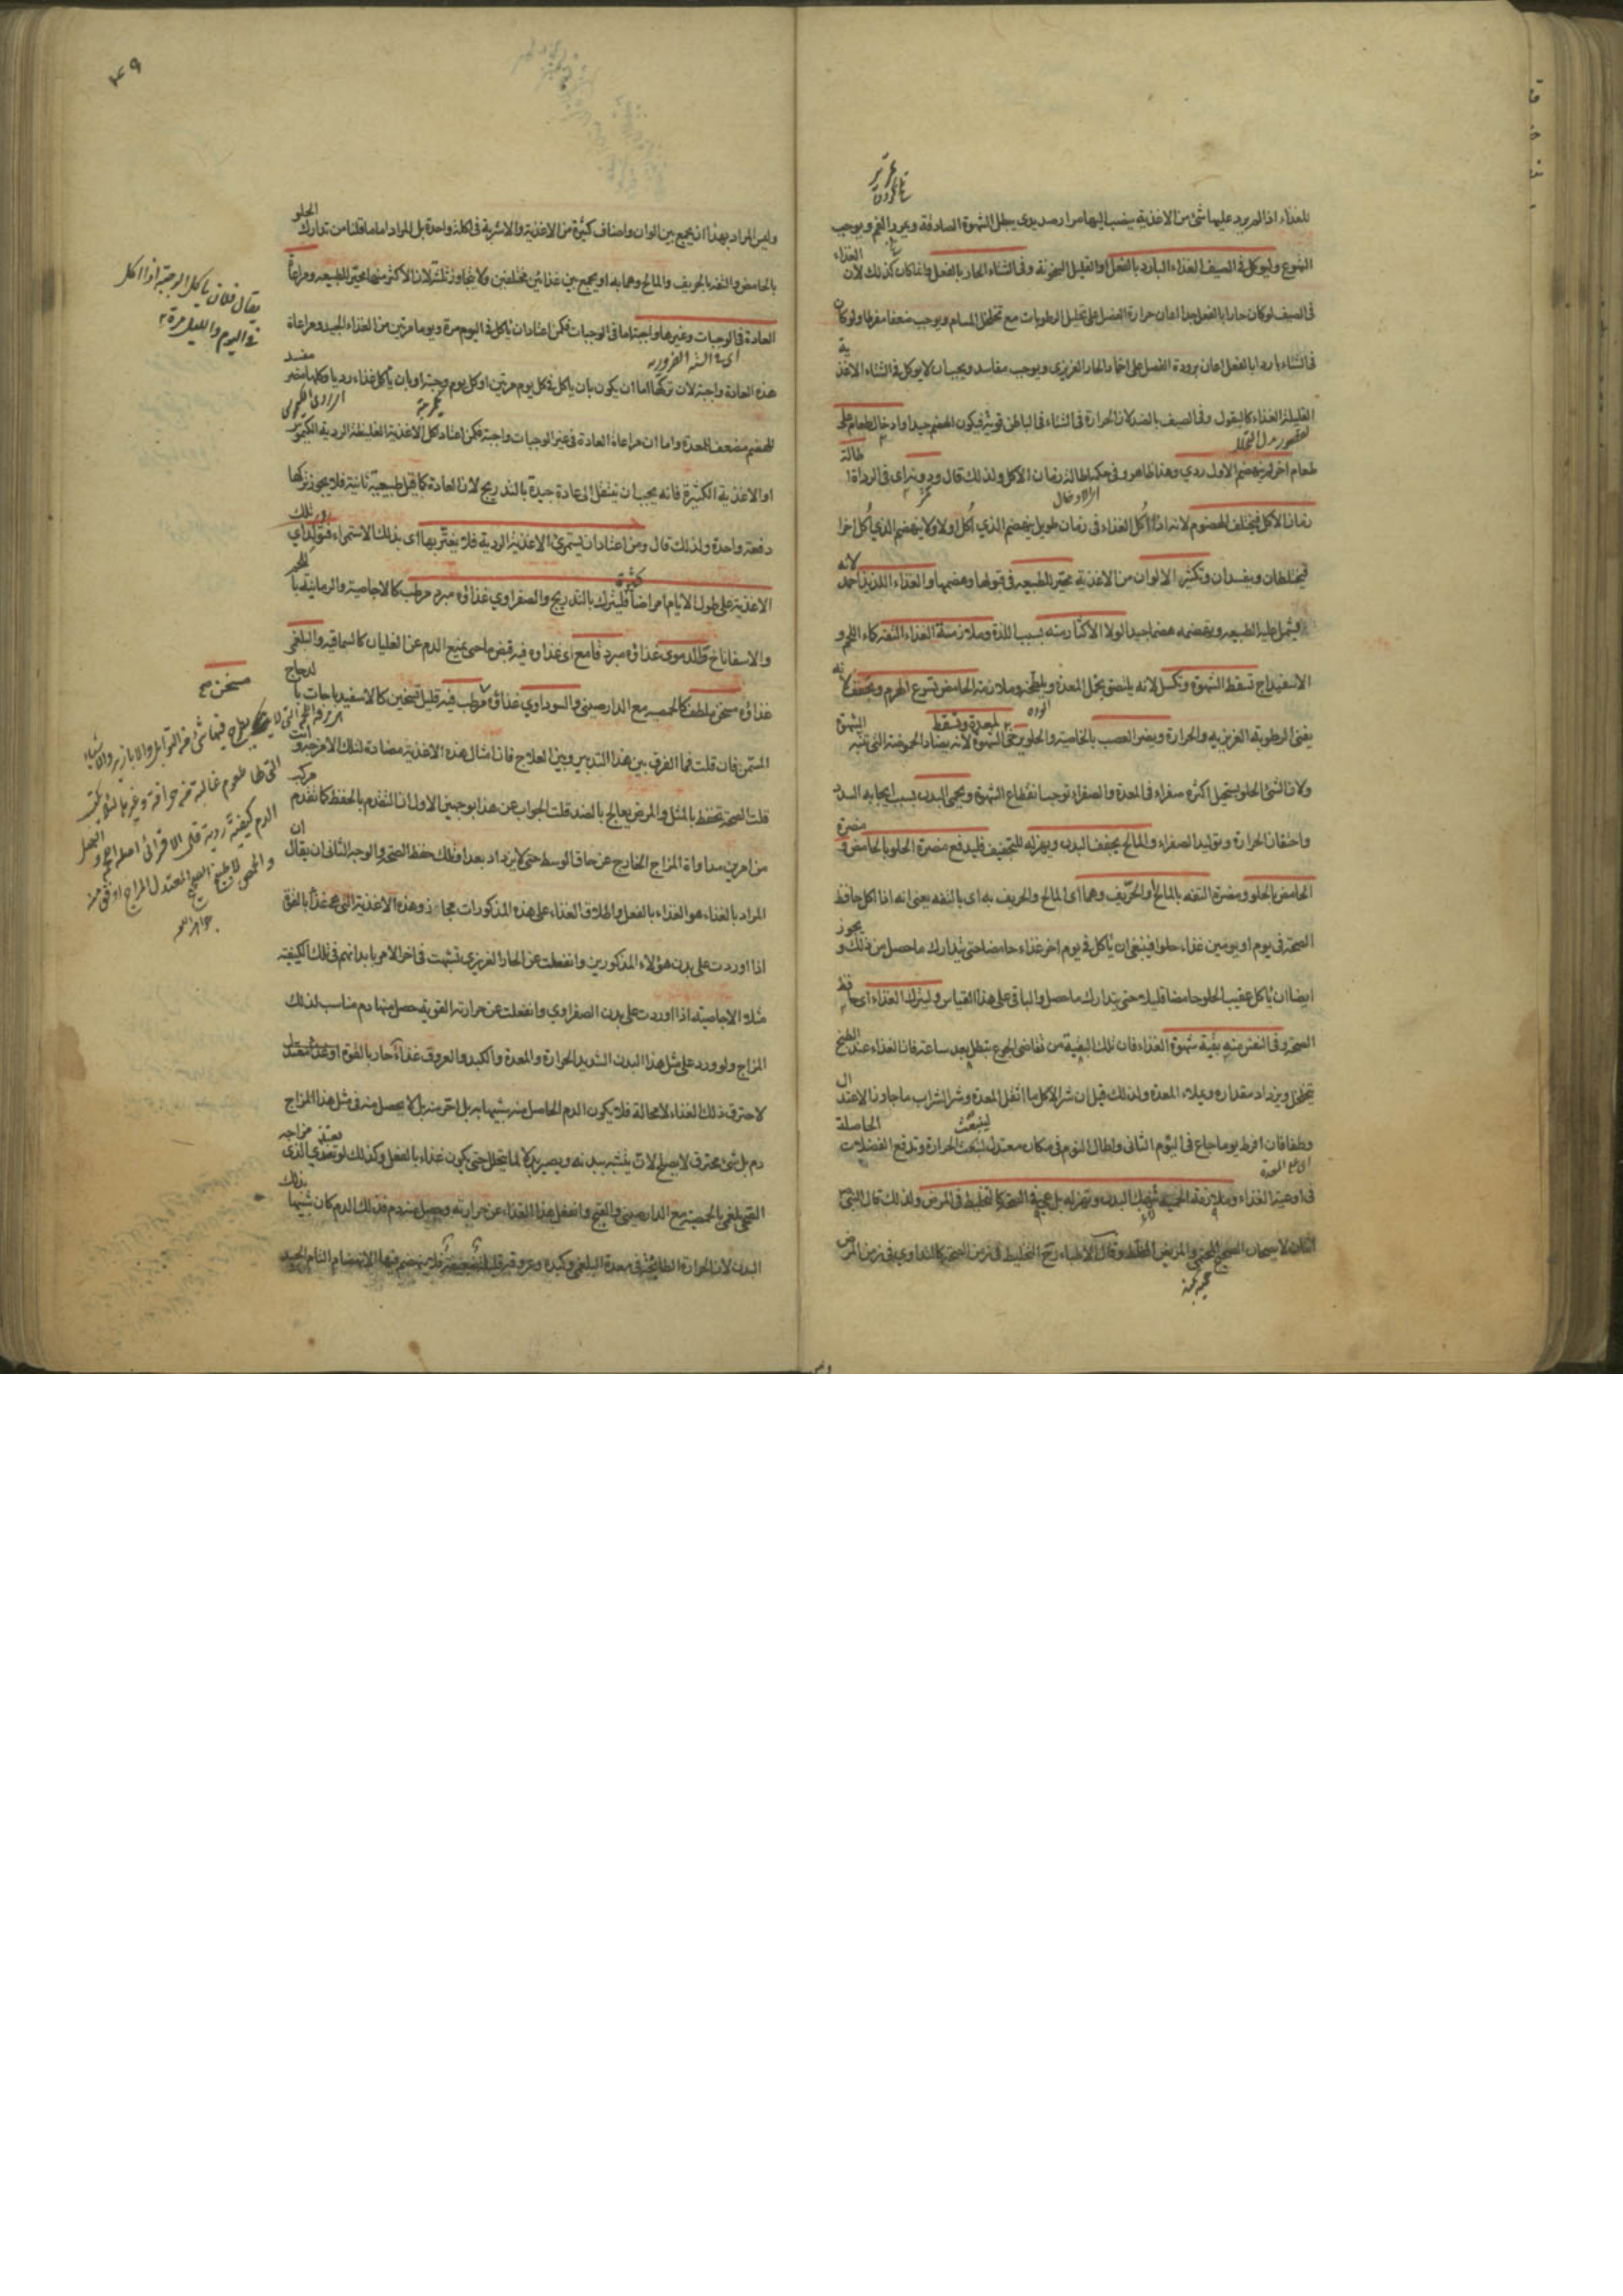 للغذاء اذا لم يرد عليها شئ من الاغذية ينصب اليها مرار صديدي يبطل الشهوة الصادقة ويمرر الفم ويوجب
التهوع وليوكل في الصيف الغذاء البارد بالفعل او القليل السخونة وفي الشتاء الحار بالفعل وانما كان كذلك لان الغذاء
في الصيف لو كان حارا بالفعل جدا اعان حرارة الفصل على تحليل الرطوبات مع تخلخل المسام ويوجب ضعفا مفرطا ولو كان
في الشتاء باردا بالفعل اعان برودة الفصل على اخماد الحار الغريزي ويوجب مفاسد ويجب ان لا يوكل في الشتاء الاغذية
القليلة الغذاء كالبقول وفي الصيف بالضد لان الحرارة في الشتاء في الباطن قوية فيكون الهضم جيدا وادخال الطعام على
طعام اخر لم ينهضم الاول ردي وهذا ظاهر وفي حكمه اطالة زمان الاكل ولذلك قال ودونه اي في الرداءة اطالة
زمان الاكل فيختلف الهضوم لانه اذا اكل الغذاء في زمان طويل ينهضم الذي اكل اولا ولا ينهضم الذي اكل اخرا
فيختلطان ويفسدان وتكثير الالوان من الاغذية محير للطبيعه في قبولها وهضمها والغذاء اللذيذ احمد لانه
يشمل عليه الطبيعه ويهضمه هضما جيدا لولا الاكثار منه بسبب اللذة وملازمة الغذاء التفه كماء اللحم و
الاسفيداج تسقط الشهوة وتكسل لانه يلتصق بخمل المعدة ويلطخه وملازمة الحامض تسرع الهرم ويجفف لانه
يفنى الرطوبة الغريزيه والحرارة ويضر العصب بالخاصية والحلو يرخي المعدة وتسقط الشهوة لانه يضاد الحموضة التي تنبه الشهوة
ولان الشئ الحلو يستحيل اكثره صفراء في المعدة والصفراء توجب انقطاع الشهوة ويحمي البدن بسبب ايجابه السدد
واحتقان الحرارة وتوليد الصفراء والمالح يجفف البدن ويهزله للتجفيف فليدفع مضرة الحلو بالحامض و مضرة
الحامض بالحلو ومضرة التفه بالمالح والحريف وهما اي المالح والحريف به اي بالتفه يعني انه اذا اكل حافظ
الصحة في يوم او يومين غذاء حلوا فينبغي ان ياكل في يوم اخر غذاء حامضا حتى يتدارك ما حصل من ذلك و يجوز
ايضا ان ياكل عقيب الحلو حامضا قليلا حتى يتدارك ما حصل والباقي على هذا القياس وليترك الغذاء اي حافظ
الصحة وفي النفس منه بقية شهوة الغذاء فان تلك البقية من تقاضي الجوع تبطل بعد ساعة فان الغذاء عند الطبخ
يتخلخل ويزداد مقداره ويملاء المعدة ولذلك قيل ان شر الاكل ما اثقل المعدة وشر الشراب ما جاوز الاعتدال
وطفا فان افرط يوما جاع في اليوم الثاني واطال النوم في مكان معتدل لينبعث الحرارة وتدفع الفضلات الحاصلة
في اوعية الغذاء وملازمة الحمية تنهك البدن وتهزله بل هي في الصحة كالتخليط في المرض ولذلك قال الشيخ
اثنان لا يصحان الصحيح المحتمي والمريض المخلط وقال الاطباء التخليط في زمن الصحة كالتداوي في زمن المرض
وليس المراد بهذا ان يجمع بين الوان واصناف كثيرة من الاغذية والاشربة في اكلة واحدة بل المراد اما ما قلنا من تدارك الحلو
بالحامض والتفه بالحريف والمالح وهما به او يجمع بين غذائين مختلفين ولا يتجاوز ثلثة لان الاكثر منها محير للطبيعه ومراعاة
العادة في الوجبات وغيرها واجبة اما في الوجبات فكمن اعتاد ان ياكل في اليوم مرة ويوما مرتين من الغذاء الجيد ومراعاة
هذه العادة واجبة لان تركها اما ان يكون بان ياكل في كل يوم مرتين او كل يوم وجبة او بان ياكل غذاء رديا وكلها مضر
للهضم مضعف للمعدة واما ان مراعاة العادة في غير الوجبات واجبة فكمن اعتاد اكل الاغذية الغليظة الردية الكيموس
او الاغذية الكثيرة فانه يجب ان ينتقل الى عادة جيدة بالتدريج لان العادة كما قيل طبيعية ثانية فلا يجوز تركها
دفعة واحدة ولذلك قال ومن اعتاد ان يستمرئ الاغذية الردية فلا يغتر بها اي بذلك الاستمراء فتولد اي تلك
الاغذية على طول الايام امراضا كثيرة فليترك بالتدريج والصفراوي غذاؤه مبرد مرطب كالاجاصية والرمانية بالخبز
والاسفاناخ والدموي غذاؤه مبرد قامع اي غذاؤه فيه قبض ما حتى يمنع الدم عن الغليان كالسماقيه والبلغمي
غذاؤه مسخن ملطف كالحمصيه مع الدارصيني والسوداوي غذاؤه مرطب فيه قليل تسخين كالاسفيدباجات بالدجاج
المسمن فان قلت فما الفرق بين هذا التدبير وبين العلاج فان امثال هذه الاغذية مضادة لتلك الامزجة وانت
قلت الصحة تحفظ بالمثل والمرض يعالج بالضد قلت الجواب عن هذا بوجهين الاول ان التقدم بالحفظ كما تقدم مركب
من امرين مداواة المزاج الخارج عن حاق الوسط حتى لا يزداد بعدا وذلك حفظ الصحة والوجه الثاني ان يقال ان
المراد بالغذاء هو الغذاء بالفعل واطلاق الغذاء على هذه المذكورات مجاز وهذه الاغذية التي هي غذاء بالقوة
اذا اوردت على بدن هؤلاء المذكورين وانفعلت عن الحار الغريزي تشبهت في اخر الامر بابدانهم في تلك الكيفية
مثلا الاجاصية اذا اوردت على بدن الصفراوي وانفعلت عن حرارته القوية حصل منها دم مناسب لذلك
المزاج ولو ورد على مثل هذا البدن الشديد الحرارة والمعدة والكبد والعروق غذاء حار بالقوة او غذاء معتدل
لاحترق ذلك الغذاء لا محالة فلا يكون الدم الحاصل منه شبيها به بل احر منه بل لا يحصل منه في مثل هذا المزاج
دم بل شئ محترق لا يصلح لان يتشبه ببدنه ويصير بدلا لما يتحلل حتى يكون غذاء بالفعل وكذلك لو تغذي الذي مزاجه
بلغمي بالحمصية مع الدارصيني وانفعل هذا الغذاء عن حرارته وحصل منه دم فذلك الدم كان شبيها بذلك
البدن لان الحرارة الطابخة في معدة البلغمي وكبده وعروقه قليلة ضعيفة فلا ينهضم فيها الانهضام التام الجيد
يقال فلان ياكل الوجبة اذا اكل
في اليوم والليل مرة